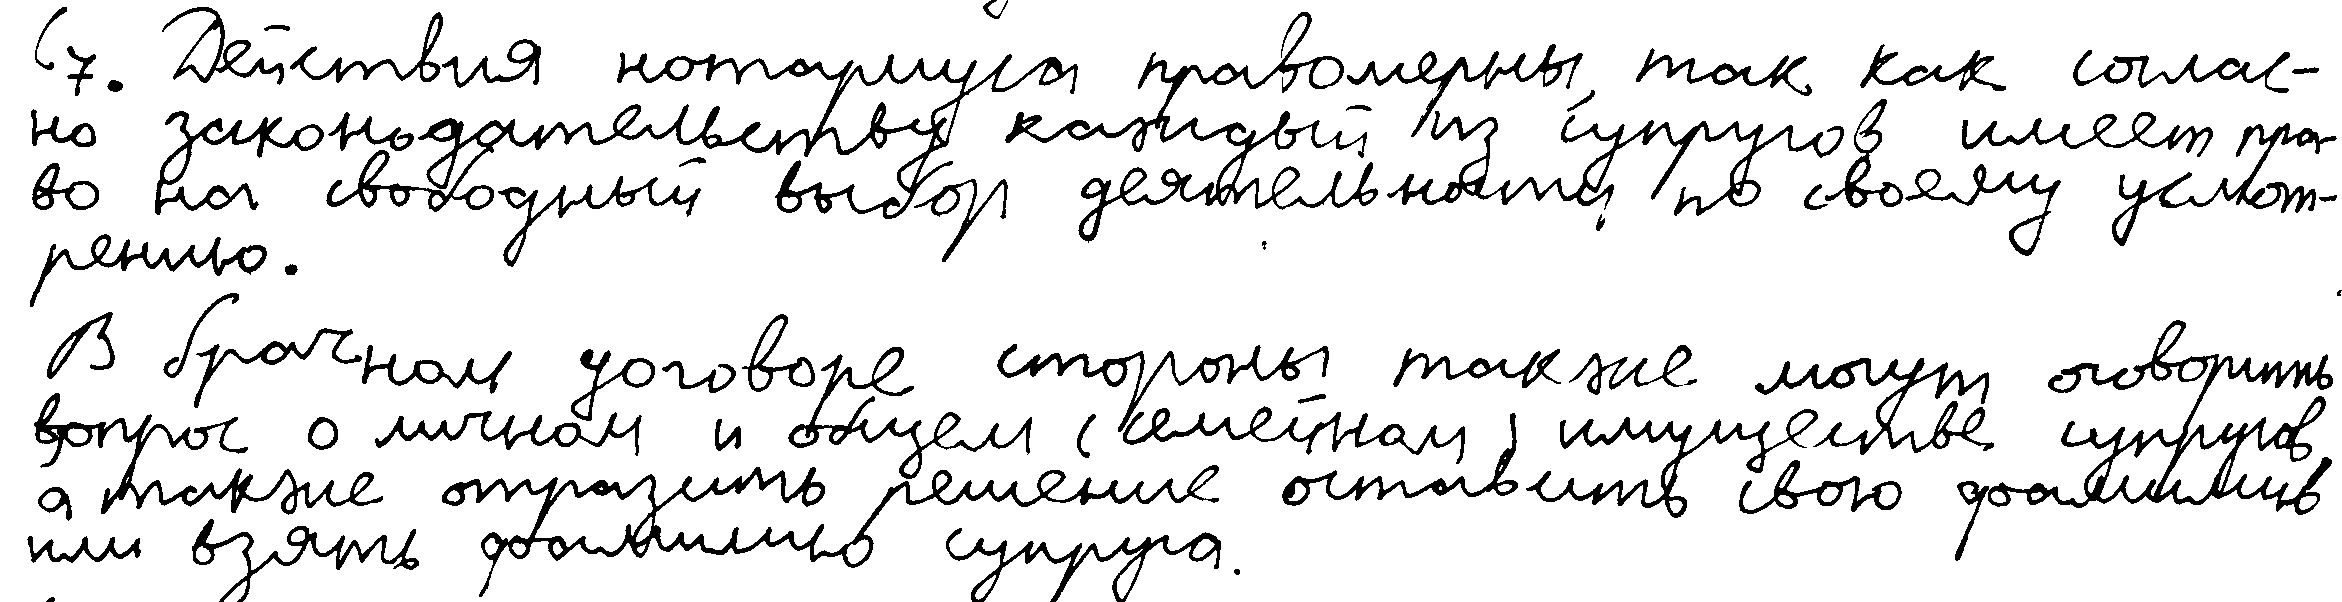 С7. Действия нотариуса правомерны, так как соглас-
но законодательству каждый из супругов имеет пра-
во на свободный выбор деятельности по своему усмот-
рению.
В брачном договоре стороны также могут оговорить
вопрос о личном и общем (семейном) имуществе супругов,
а также отразить решение оставить свою фамилию
или взять фамилию супруга.